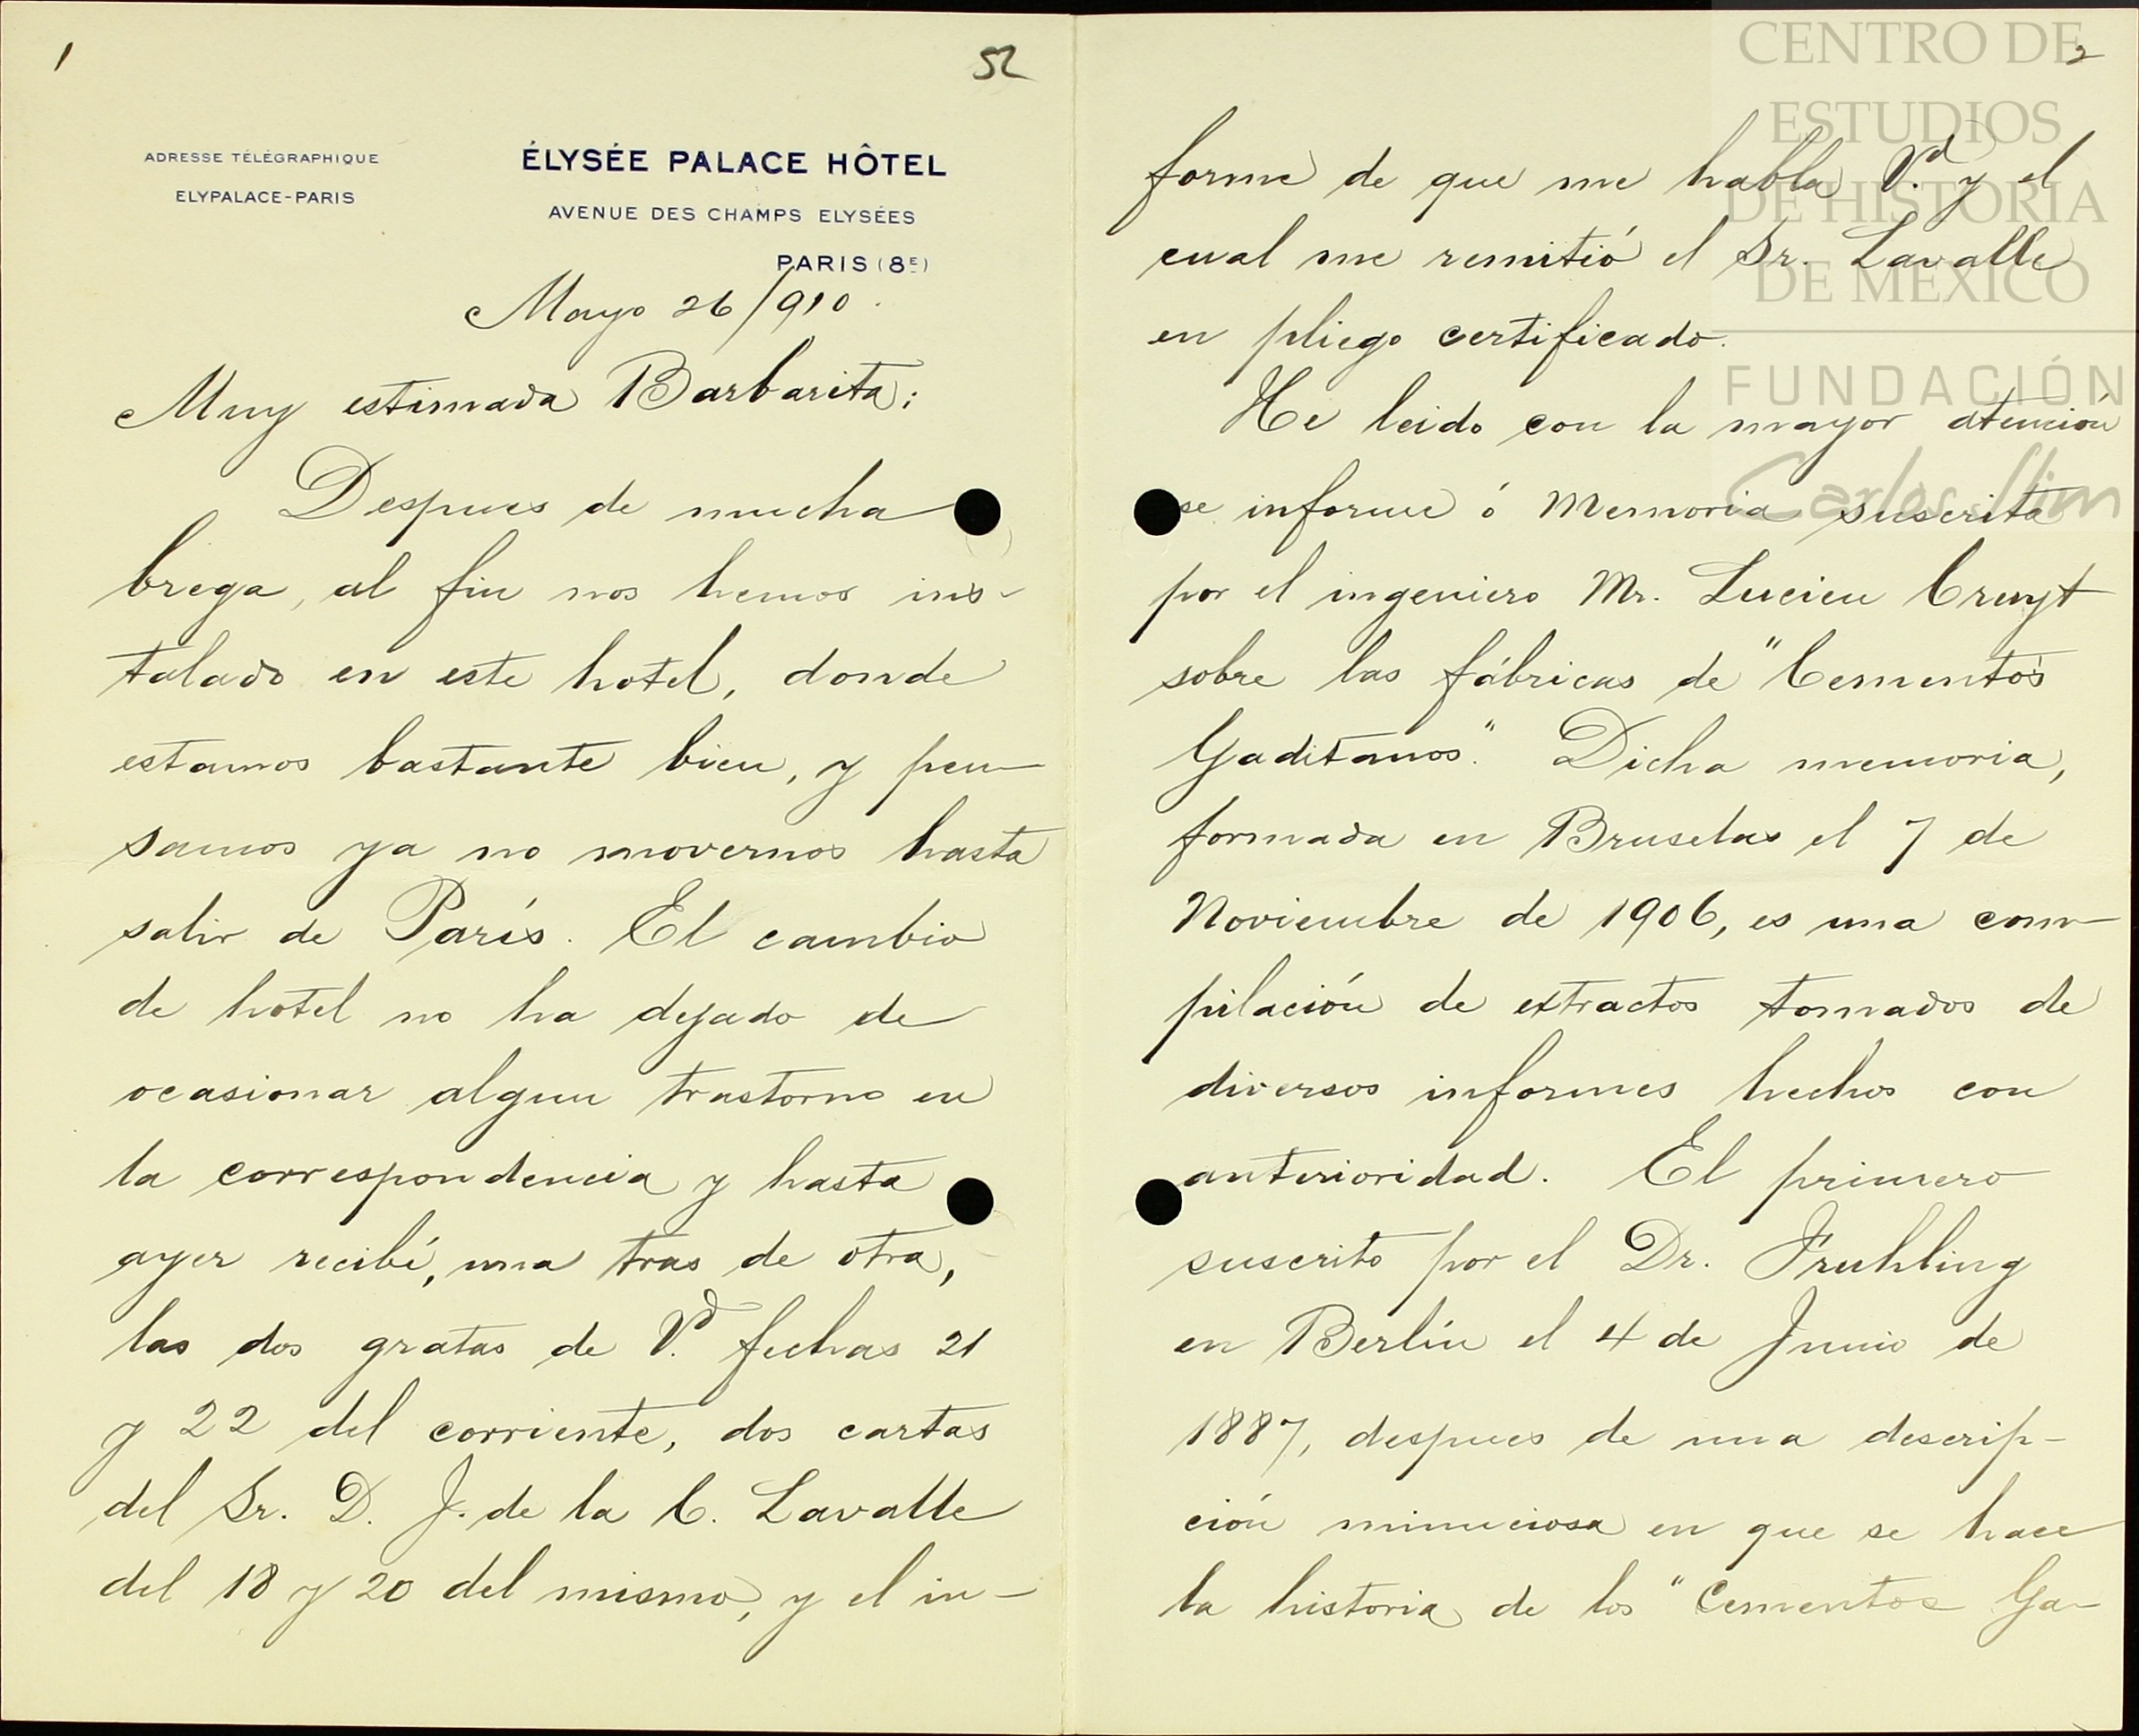 1
52
ADRESSE TÉLÉGRAPHIQUE
ELYPALACE-PARIS
ÉLYSÉE PALACE HÔTEL
AVENUE DES CHAMPS ELYSÉES
PARIS (8E)
Mayo 26/910.
Muy estimada Barbarita:
Despues de mucha
brega, al fin nos hemos ins-
talado en este hotel, donde
estamos bastante bien, y pen-
samos ya no movernos hasta
salir de París. El cambio
de hotel no ha dejado de
ocasionar algun trastorno en
la correspondencia y hasta
ayer recibí, una tras de otra,
las dos gratas de V.d fechas 21
y 22 del corriente, dos cartas
del Sr. D. J. de la C. Lavalle
del 18 y 20 del mismo, y el in-
2
forme de que me habla V.d y el
cual me remitió el Sr. Lavalle
en pliego certificado.
He leido con la mayor atención
se informe ó Memoria suscrita
por el ingeniero Mr. Lucien Cruyt
sobre las fábricas de "Cementos
Gaditanos". Dicha memoria,
formada en Bruselas el 7 de
Noviembre de 1906, es una com-
pilación de extractos tomados de
diversos informes hechos con
anterioridad. El primero
suscrito por el Dr. Fruhling
en Berlín el 4 de Junio de
1887, despues de una descrip-
ción minuciosa en que se hace
la historia de los "Cementos Ga-
CENTRO DE
ESTUDIOS
DE HISTORIA
DE MÉXICO
FUNDACIÓN
Carlos Slim